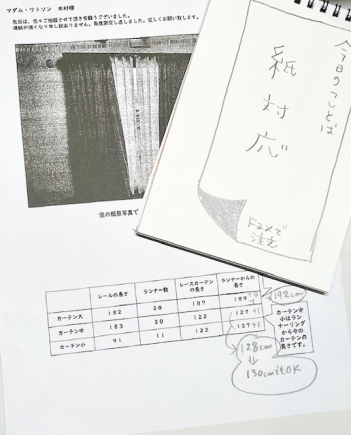 マダム・ワトソン 木村様
先日は、色々ご指導させて頂き有難うございました。
連絡が遅くなり申し訳ありません。再度測定し直しました。宜しくお願い致します。
今日のことば
紙対応
FAXで
注文
窓の撮影写真で
レールの長さ ランナー数 レースカーテンの長さ ランナーからの長さ
カーテン大 182 20 187 189
カーテン中 183 20 122 127 +1
カーテン小 91 11 122 127 +1
198cm
カーテン中
小はラン
ナーリング
からやの
カーテンの
長さです。
128cm
↓
130cmでもOK